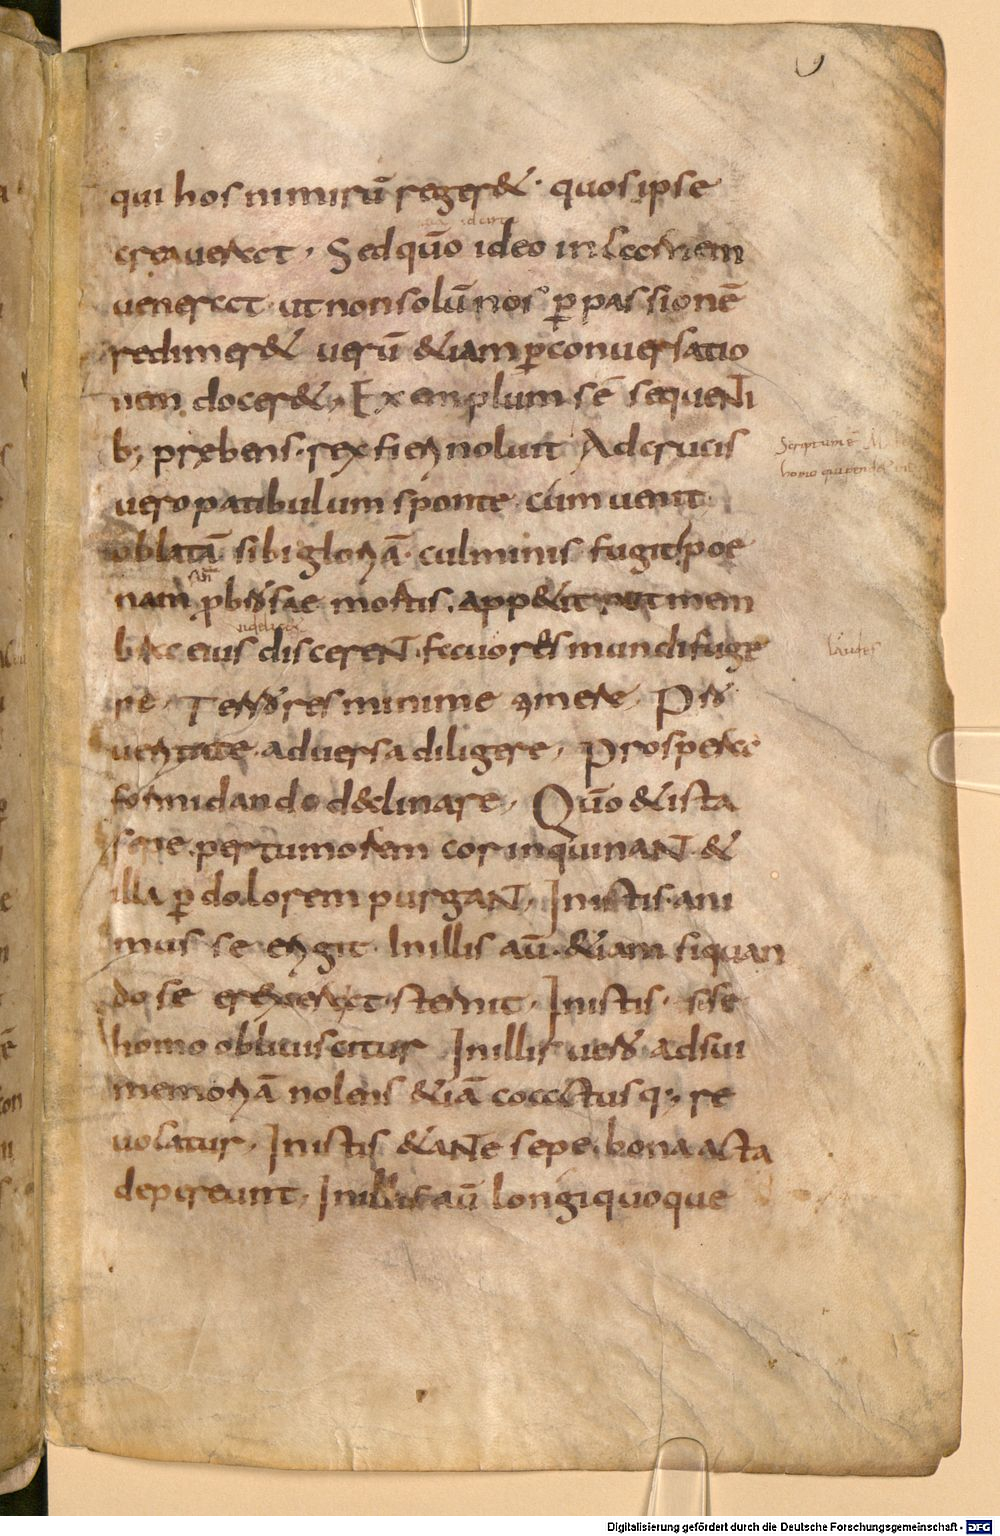 qui hos nimirū reger&. quos ipse
creauerat. Sed qm̄o ideo in carnem
uenerat ut non solū nos ꝑ passionē
redimer& uerū &iam ꝑ conuersatio
nem docer&. Exemplum sē sequenti
b; prębens. rex fieri noluit Ad crucis
uero patibulum sponte cum uenit
oblatā sibi gloriā culminis fugit poe
nam ꝓbrosae mortis. app&iit ut mem
bra eius discerent fauores mundi fuge
re. Terrores minime timere. Pro
ueritate aduersa diligere. Prospera
formidando declinare. Quō & ista
sepe per tumorem cor inquinant &
illa ꝑ dolorem purgant. In istis ani
mus se erigit. In illis aū &iam si quan
do se erexerat sternit. In istis. sese
homo obliuiscitur In illis uero ad sui
memoriā nolens &iā coactusq; re
uocatur. In istis &ante sepe bona acta
depereunt. In illis aū longi quoque
uidelicet
laudes
Digitalisierung gefördert durch die Deutsche Forschungsgemeinschaft - DFG